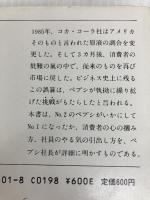 1985年、コカ・コーラ社はアメリカ
そのものと言われた原液の調合を変更
した。そして3カ月後、消費者の
批難の嵐の中で、従来のものを再び
市場に戻した。ビジネス史上に残る
この誤算は、ペプシが執拗に繰り拡
げた挑戦がもたらしたと言われる。
本書は、No.2のペプシがいかにして
No.1になったか、消費者の心の摑み
方、社員のやる気の引出し方を、ペ
プシ社長が詳細に明かすものである。
01-8 C0198 ¥600E 定価600円